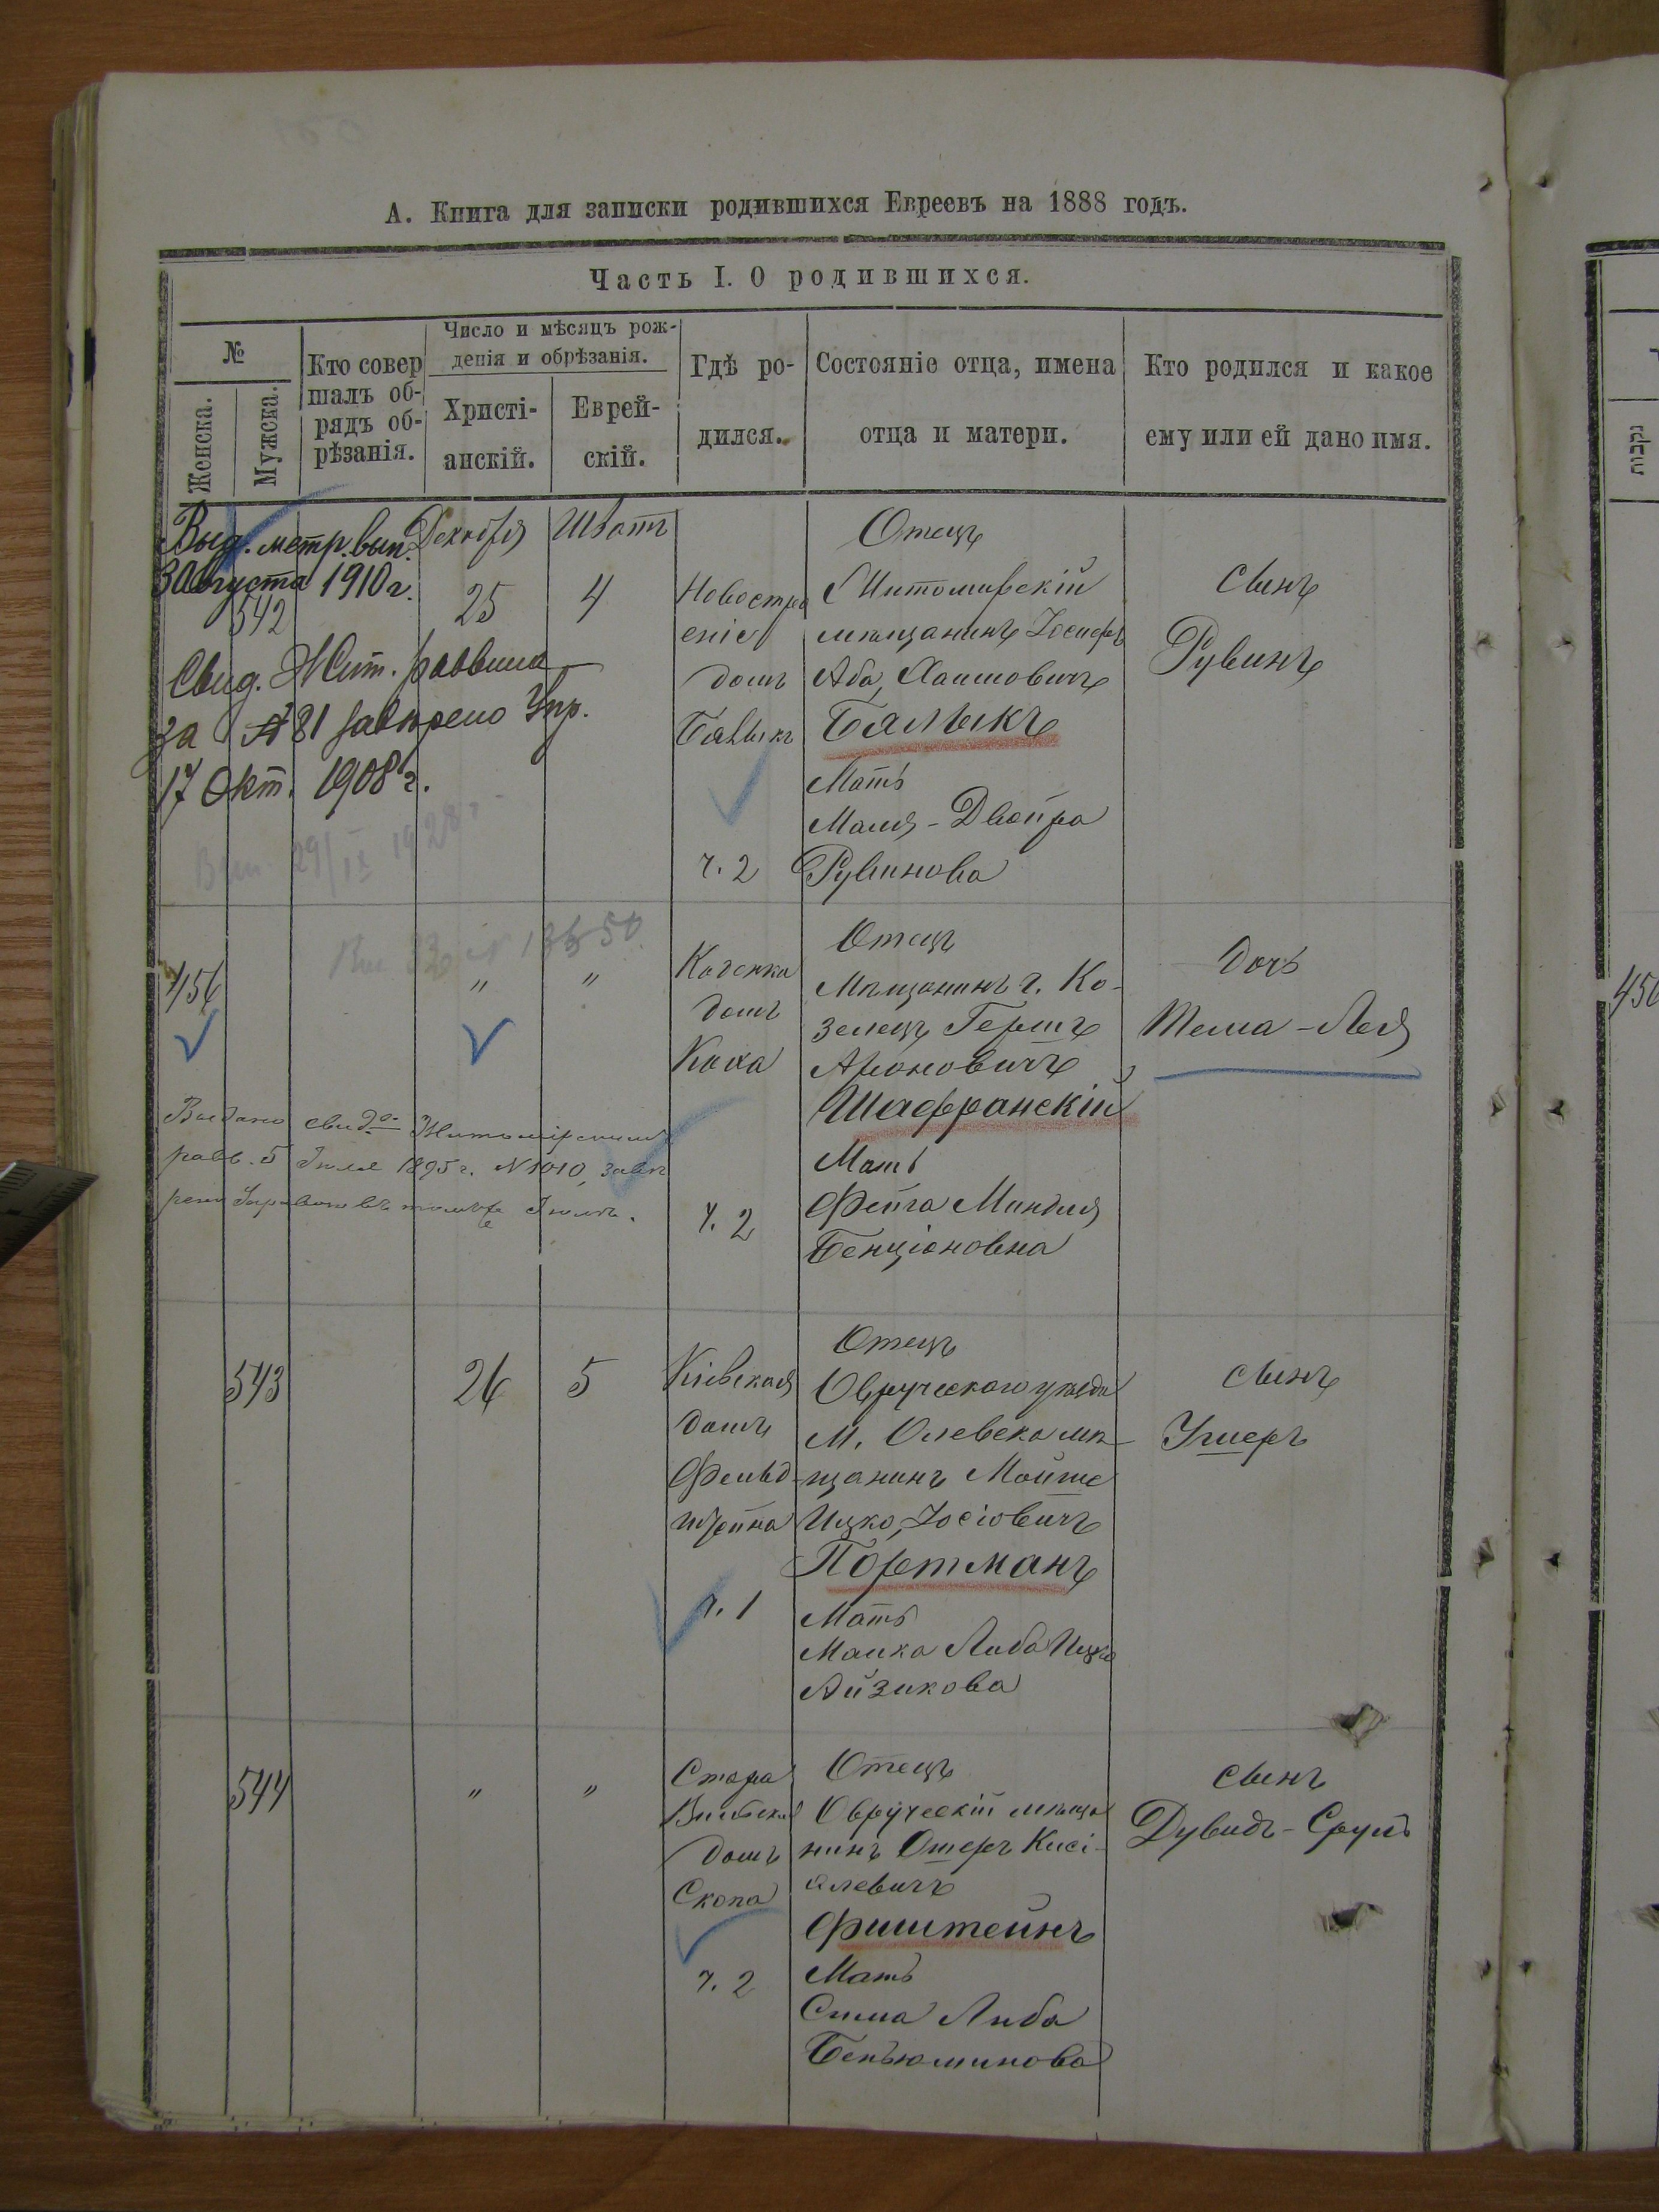 А. Книга для записки родившихся Евреевъ на 1888 годъ.
Часть I. О родившихся.
№
Женска.
Мужска.
Кто совер
шалъ об-
рядъ об-
рѣзанія.
Число и мѣсяцъ рож-
денія и обрѣзанія.
Христі-
анскій.
Еврей-
скій.
Гдѣ ро-
дился.
Состояніе отца, имена
отца и матери.
Кто родился и какое
ему или ей дано имя.
Выд. метр. вып.
3 Августа 1910 г.
542
Свид. Жит. раввина
за № 81 завѣрено Упр.
17 Окт. 1908 г.
Декабря
25
Шватъ
4
Новостро
еніе
домъ
Бялыкъ
ч. 2
Отецъ
Житомирскій
мѣщанинъ Іосифъ
Аба, Хаимовичъ
Бялыкъ
Мать
Маля-Двойра
Рувинова
Сынъ
Рувинъ
29/IX 1928 г.
456
"
"
домъ
Коха
ч. 2
Отецъ
Мѣщанинъ г. Ко-
зелецъ Гершъ
Ароновичъ
Шафранскій
Мать
Фейга Миндля
Бенціоновна
Дочь
Тема-Лея
Выдано свид-во Житомірскимъ
равв. 5 Іюля 1895 г. № 1010, завѣ
рено Управою въ томъ же Іюлѣ.
456
543
26
5
Кіевская
домъ
Фельд-
штейна
ч. 1
Отецъ
Овручскаго уѣзда
м. Олевска мѣ-
щанинъ Мойше
Ицко, Іосіовичъ
Портманъ
Мать
Малка Либа Ицко
Айзикова
сынъ
Ушеръ
544
"
"
Старо
Вильская
домъ
Скопа
ч. 2
Отецъ
Овручскій мѣща
нинъ Ошеръ Кисі-
алевичъ
Фиштейнъ
Мать
Сима Либа
Беньюминова
сынъ
Дувидъ-Сруль